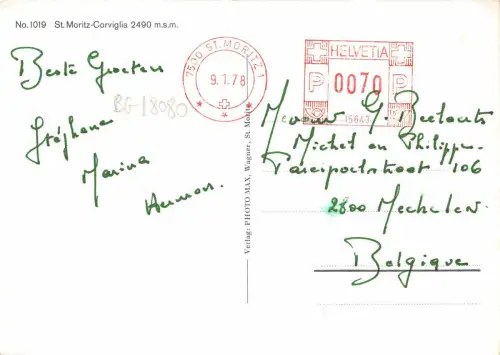 No.1019 St.Moritz-Corviglia 2490 m.s.m.
Beste Groeten
Stéphane
Marina
Herman.
BG-18080
7500 ST. MORITZ 1
9.1.78
HELVETIA
P 0070 P
15643
G. Beelaerts
Michel en Philippe
106
2800 Mechelen
Belgique
Verlag: PHOTO MAX, Wagner, St. Moritz